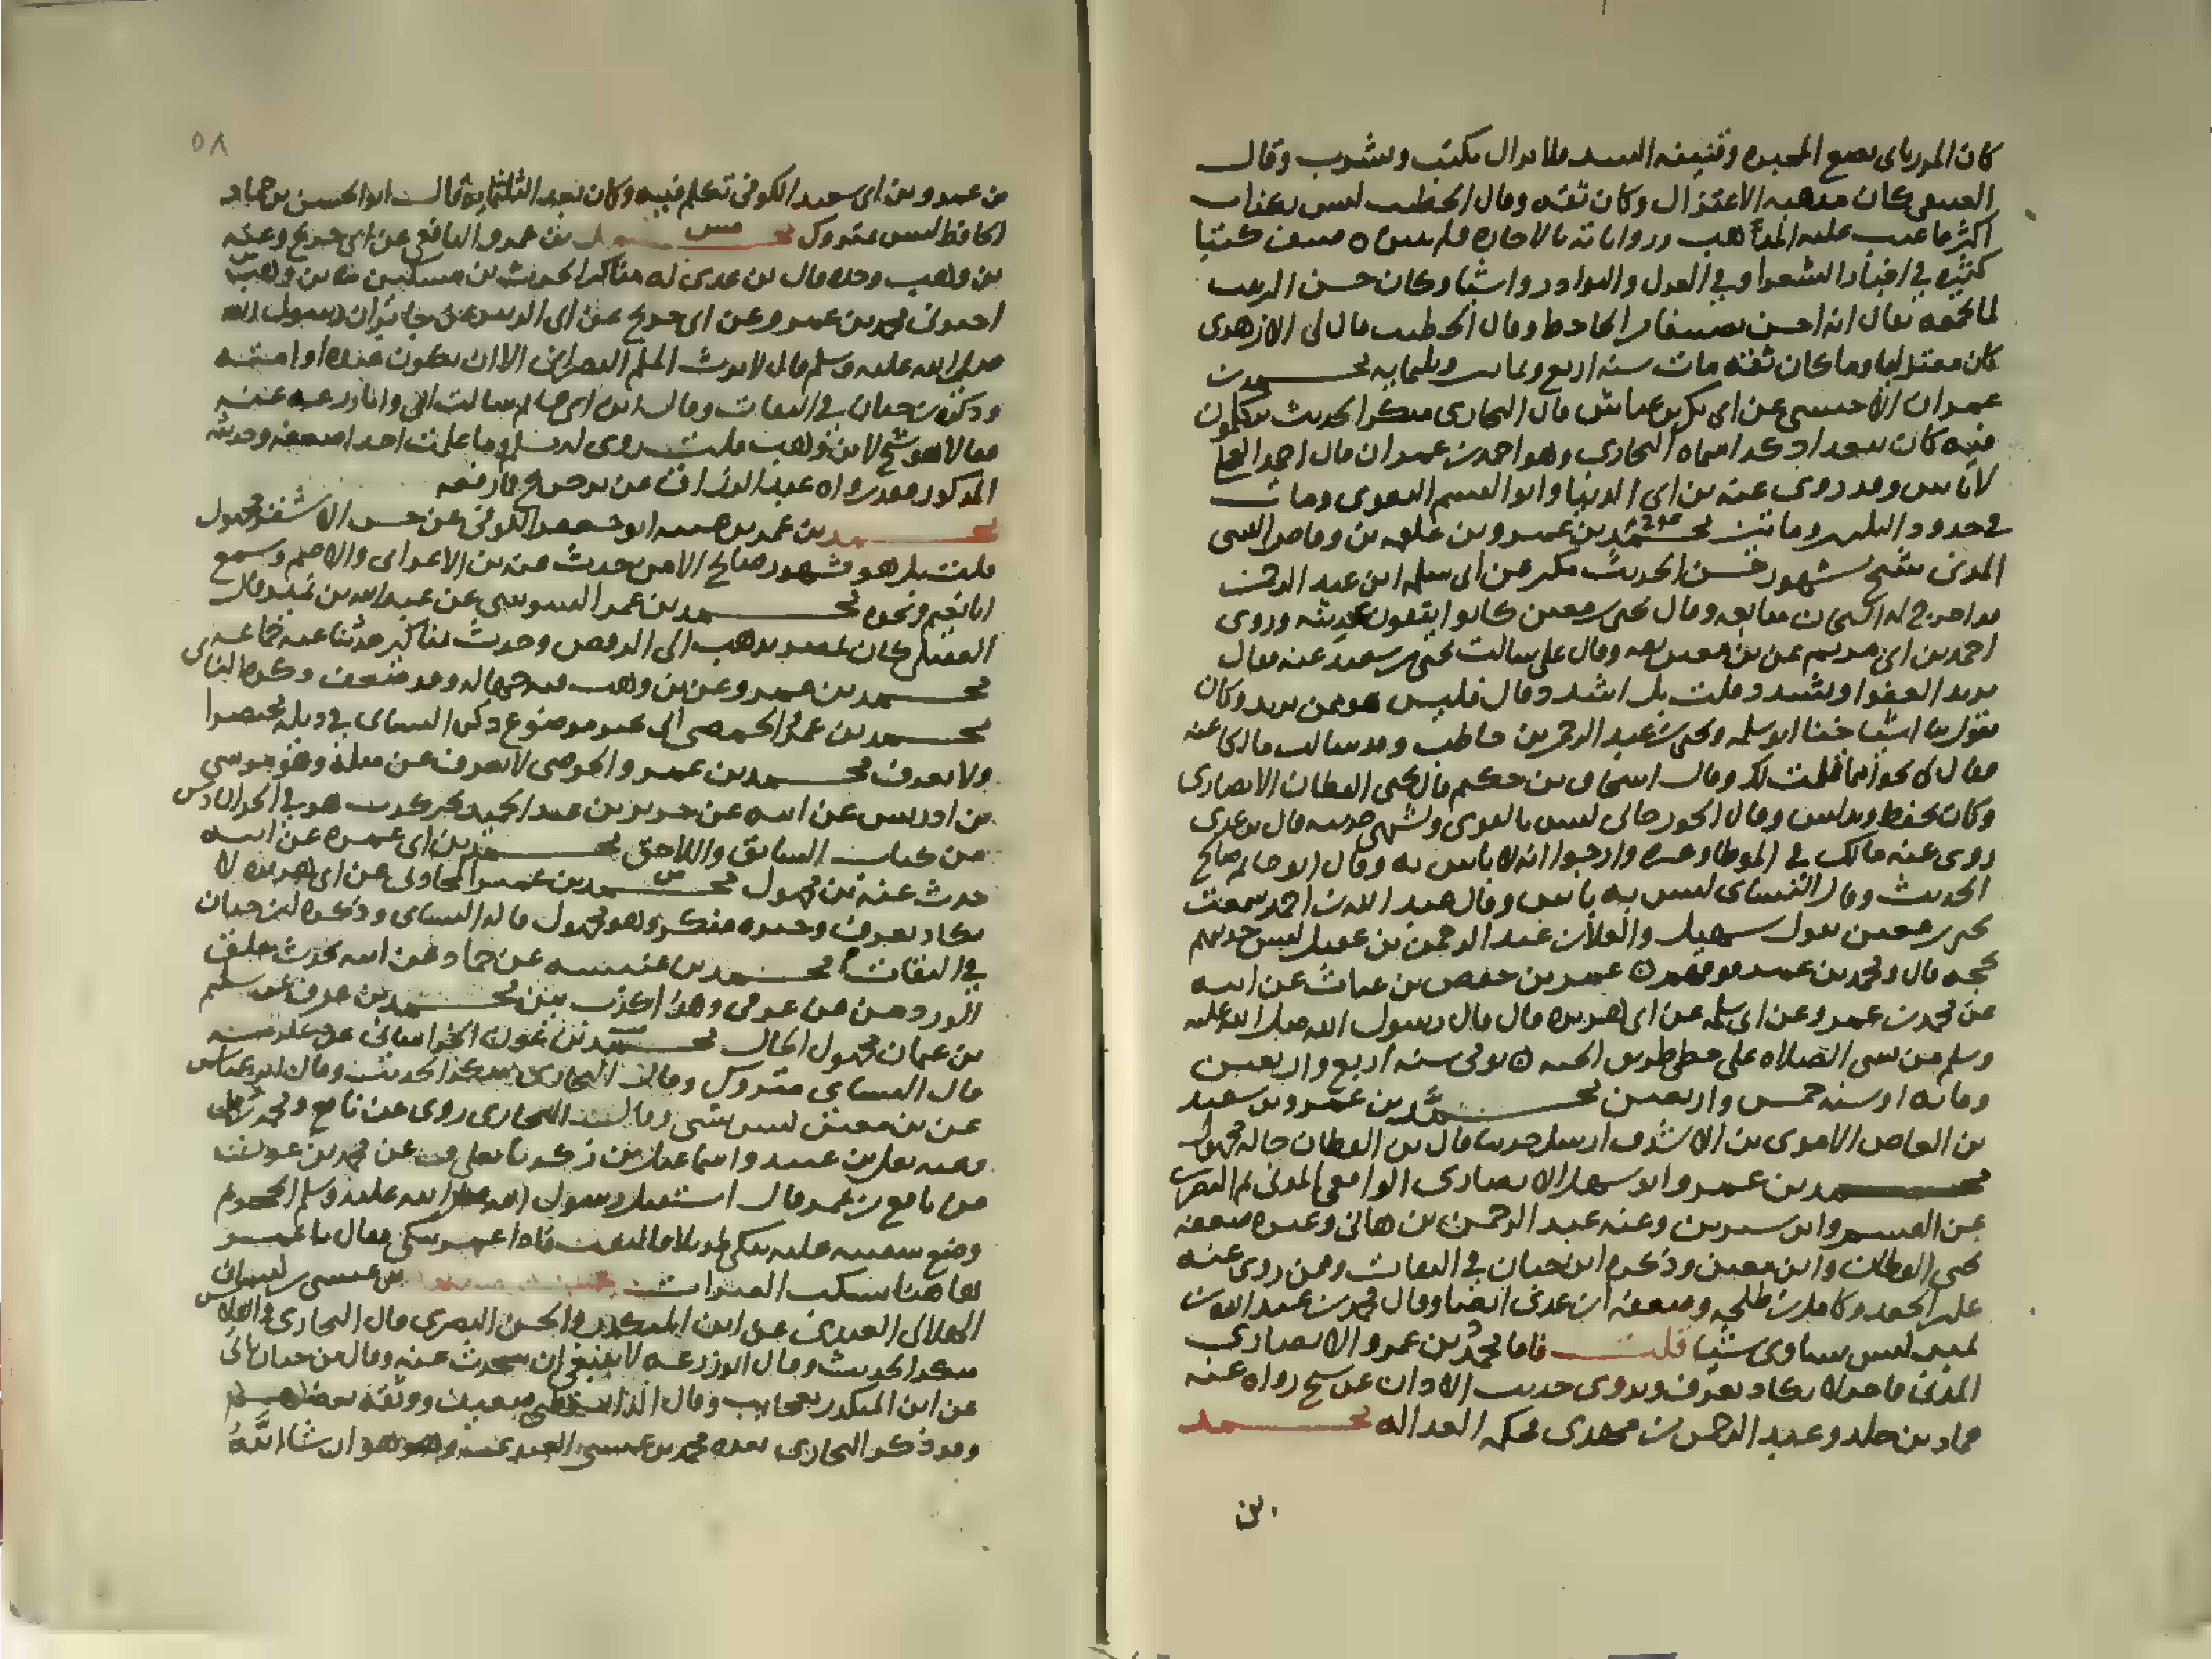 كان المرزباني يضع المحبرة وقنينة النبيذ فلا يزال يكتب ويشرب وقال
العتيقي كان مذهبه الاعتزال وكان ثقة وقال الخطيب ليس بكذاب
أكثر ما عيب عليه المذهب ورواياته بالاجازة ولم يبين ٥ صنف كتبا
كثيرة في اخبار الشعرا وفي الغزل والنوادر واشيا وكان حسن الترتيب
لما يجمعه يقال انه احسن تصنيفا من الجاحظ وقال الخطيب قال لي الازهري
كان معتزليا وما كان ثقة مات سنة اربع وثمانين وثلثماية محمد بن
عمران الاخنسي عن ابي بكر بن عياش قال البخاري منكر الحديث يتكلمون
فيه كان ببغداد كذا سماه البخاري وهو احمد بن عمران قال احمد العجلي
لا باس وقد روى عنه بن ابي الدنيا وابو القسم البغوي ومات
في حدود الثلثين ومايتين محمد بن عمرو بن علقمة بن وقاص الليثي
المدني شيخ مشهور حسن الحديث مكثر عن ابي سلمة ابن عبد الرحمن
قد اخرج له الشيخان متابعة وقال يحيى بن معين كانوا يتقون حديثه وروى
احمد بن ابي مريم عن بن معين ثقة وقال علي سالت يحيى بن سعيد عنه فقال
تريد العفو او تشدد قلت بل اشدد قال فليس هو ممن تريد وكان
يقول نا اشياخنا ابو سلمة ويحيى بن عبد الرحمن بن حاطب وقد سالت مالكا عنه
فقال لي نحوا مما قلت لك وقال اسحاق بن حكيم قال يحيى القطان الانصاري
وكان يحفظ ويدلس وقال الجوزجاني ليس بالقوي ويشتهى حديثه قال بن عدي
روى عنه مالك في الموطا وغيره وارجوا انه لا باس به وقال ابو حاتم صالح
الحديث وقال النساي ليس به باس وقال عبد الله بن احمد سمعت
يحيى بن معين يقول سهيل والعلا بن عبد الرحمن بن عقيل ليس حديثهم
بحجة قال ومحمد بن عمرو فوقهم ٥ عمر بن حفص بن غياث عن ابيه
عن محمد بن عمرو عن ابي سلمة عن ابي هريرة قال قال رسول الله صلى الله عليه
وسلم من نسي الصلاة علي خطئ طريق الجنة ٥ توفي سنة اربع واربعين
وماية او سنة خمس واربعين محمد بن عمرو بن سعيد
بن العاص الاموي بن الاشدق ارسل حديثا قال بن القطان حاله مجهول
محمد بن عمرو ابو سهل الانصاري الواقفي المدني ثم البصري
عن القسم وابن سيرين وعنه عبد الرحمن بن هاني وغيره ضعفه
يحيى القطان وابن معين وذكره ابن حبان في الثقات وممن روى عنه
علي بن الجعد وكامل بن طلحة وضعفه ابن عدي ايضا وقال محمد بن عبد الله بن
نمير ليس يساوي شيا قلت فاما محمد بن عمرو الانصاري
المدني فاخر لا يكاد يعرف ويروي حديث الاذان عن شيخ رواه عنه
حماد بن خالد وعبد الرحمن بن مهدي محله العدالة محمد
بن
٥٨
بن عمرو بن ابي سعيد الكوفي تكلم فيه وكان بعد الثلثماية قال ابو الحسن بن حماد
الحافظ ليس متروك محمد بن عمرو اليافعي عن ابن جريج وعنه
بن وهب وحده قال بن عدي له مناكير الحديث بن مسكين نا بن وهب
اخبرني محمد بن عمرو عن ابن جريج عن ابي الزبير عن جابر ان رسول الله
صلى الله عليه وسلم قال لا يرث المسلم النصراني الا ان يكون عبده او امته
وذكره بن حبان في الثقات وقال ابن ابي حاتم سالت ابي وابا زرعة عنه
فقالا هو شيخ لابن وهب قلت روى له مسلم وما علمت احدا ضعفه وحديثه
المذكور فقد رواه عبد الرزاق عن بن جريج فما رفعه
محمد بن عمر بن صفية ابو جعفر الكوفي عن حسين الاشقر مجهول
قلت بل هو مشهور صالح الامر حدث عنه بن الاعرابي والاصم وسمع
ابا نعيم ونحوه محمد بن عمر السوسي عن عبد الله بن نمير قال
العقيلي كان بمصر يذهب الى الرفض وحدث بمناكير حدثنا عنه جماعة
محمد بن عمرو عن بن وهب فيه جهالة وقد ضعف ذكره النباتي
محمد بن عمرو الحمصي اتى بخبر موضوع ذكره النساي في ذيله مختصرا
ولا يعرف محمد بن عمرو الحوضي لا يعرف عن مثله وهو موسى
بن ادريس عن ابيه عن جرير بن عبد الحميد بخبر كذب هو في الجزء السادس
من كتاب السابق واللاحق محمد بن ابي عميرة عن ابيه
حدث عنه بن مجهول محمد بن عمير المحاربي عن ابي هريرة لا
يكاد يعرف وخبره منكر وهو مجهول قاله النساي وذكره ابن حبان
في الثقات محمد بن عنبسة عن حماد عن ابيه بحديث خلق
الورد من من عرقي وهذا كذب بين محمد بن عوف عن سليم
بن عثمان مجهول الحال محمد بن عون الخراساني عن عكرمة
قال النساي متروك وقال البخاري منكر الحديث وقال ابن عباس
عن بن معين ليس بشي وقال البخاري روى عن نافع ومحمد
وعنه يعلى بن عبيد واسماعيل بن زكريا يعلى عن محمد بن عون
عن نافع بن عمر قال استقبل رسول الله صلى الله عليه وسلم الحجر ثم
وضع شفتيه عليه يبكي طويلا فالتفت فاذا عمر يبكي فقال يا عمر
هاهنا تسكب العبرات محمد بن عيسى بن كيسان
الهلالي العبدي عن ابن المنكدر والحسن البصري قال البخاري والفلاس
منكر الحديث وقال ابو زرعة لا ينبغي ان يحدث عنه وقال بن حبان ياتي
عن ابن المنكدر بعجايب وقال الدارقطني ضعيف ووثقه بعضهم
وقد ذكر البخاري بعده محمد بن عيسى العبدي وهو هو ان شا الله